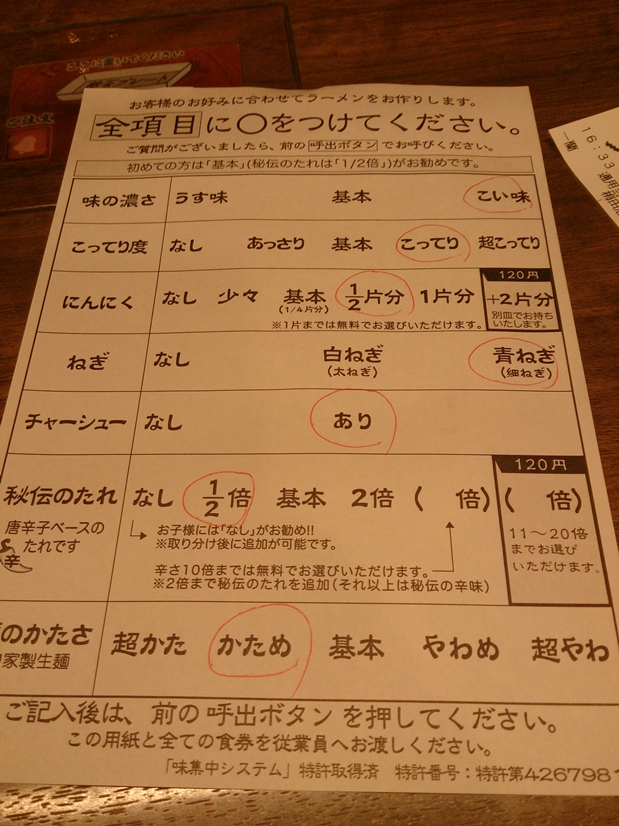 ここに置いてください
ご注文
お客様のお好みに合わせてラーメンをお作りします。
全項目に○をつけてください。
ご質問がございましたら、前の呼出ボタンでお呼びください。
初めての方は「基本」(秘伝のたれは「1/2倍」)がお勧めです。
味の濃さ うす味 基本 こい味
こってり度 なし あっさり 基本 こってり 超こってり
120円
にんにく なし 少々 基本 1/2片分 1片分 +2片分
(1/4片分) 別皿でお持ち
※1片までは無料でお選びいただけます。 いたします。
ねぎ なし 白ねぎ 青ねぎ
(太ねぎ) (細ねぎ)
チャーシュー なし あり
120円
秘伝のたれ なし 1/2倍 基本 2倍 ( 倍) ( 倍)
唐辛子ベースの
たれです
辛
お子様には「なし」がお勧め!!
※取り分け後に追加が可能です。
11～20倍
までお選び
いただけます。
辛さ10倍までは無料でお選びいただけます。
※2倍まで秘伝のたれを追加(それ以上は秘伝の辛味)
のかたさ 超かた かため 基本 やわめ 超やわ
家製生麺
ご記入後は、前の呼出ボタンを押してください。
この用紙と全ての食券を従業員へお渡しください。
「味集中システム」特許取得済 特許番号：特許第4267981
16:33
一蘭